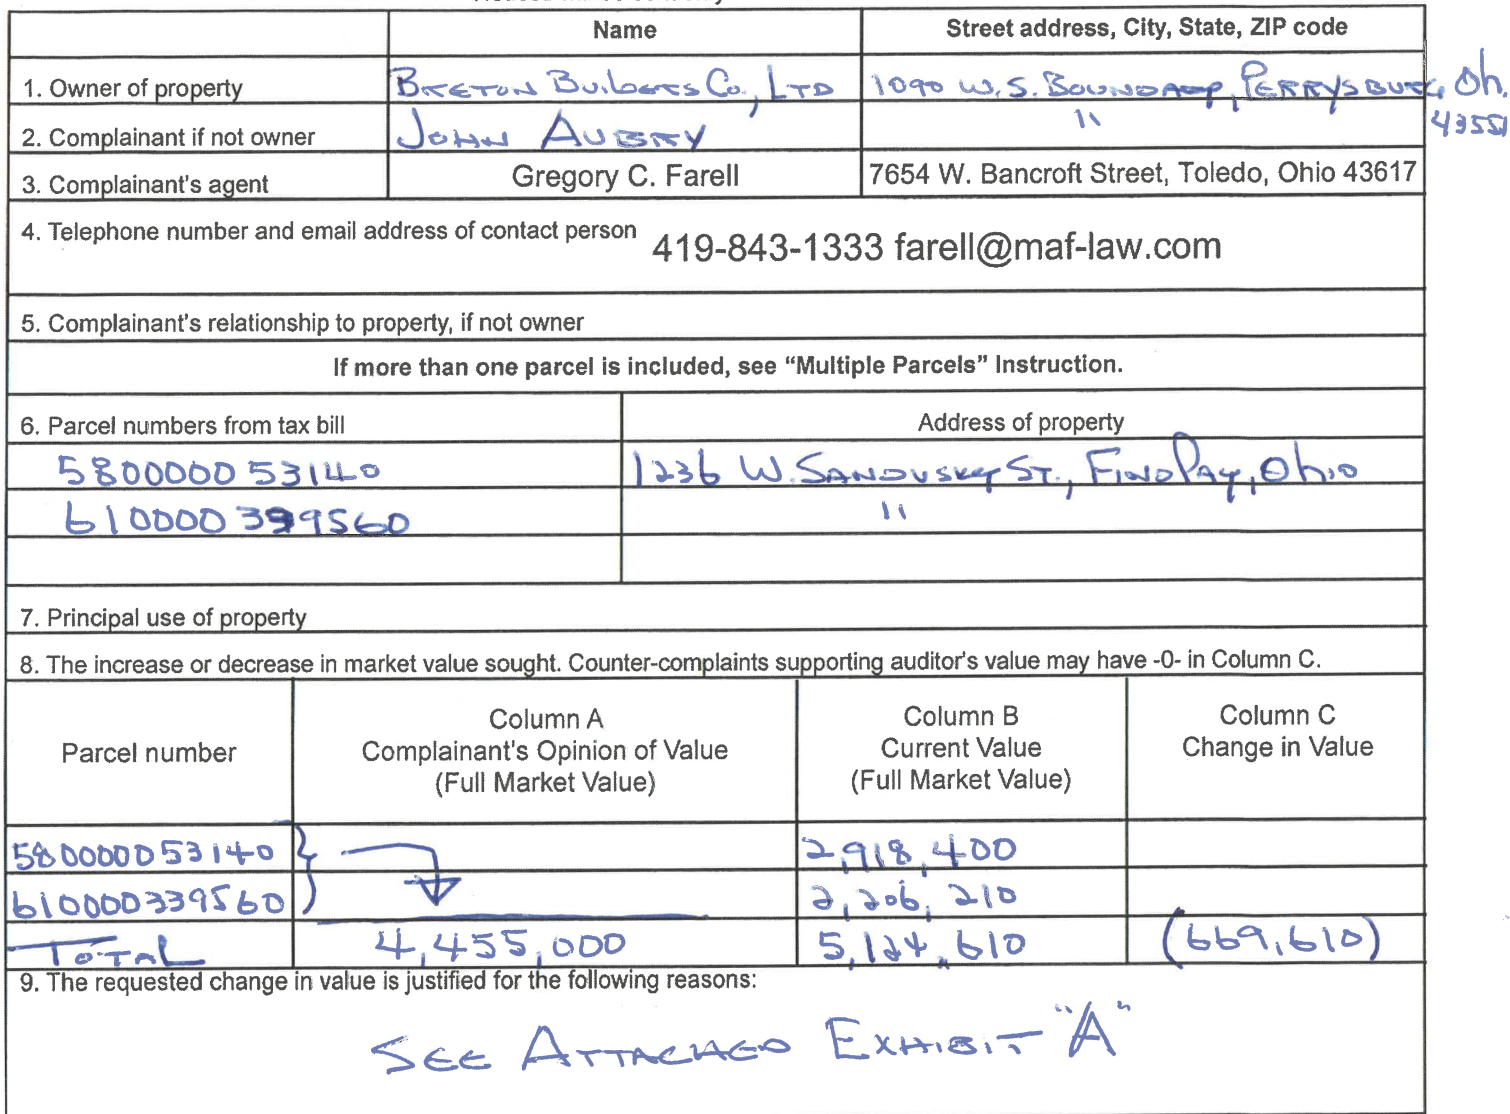 Name Street address, City, State, ZIP code
1. Owner of property Breton Builders Co., LTD 1090 W. S. Boundary, Perrysburg, Oh. 43551
2. Complainant if not owner John Aubry "
3. Complainant's agent Gregory C. Farell 7654 W. Bancroft Street, Toledo, Ohio 43617
4. Telephone number and email address of contact person 419-843-1333 farell@maf-law.com
5. Complainant's relationship to property, if not owner
If more than one parcel is included, see “Multiple Parcels” Instruction.
6. Parcel numbers from tax bill Address of property
580000053140 1236 W. Sandusky St., Findlay, Ohio
610000339560 "
7. Principal use of property
8. The increase or decrease in market value sought. Counter-complaints supporting auditor's value may have -0- in Column C.
Parcel number
Column A
Complainant's Opinion of Value
(Full Market Value)
Column B
Current Value
(Full Market Value)
Column C
Change in Value
580000053140 2,918,400
610000339560 2,206,210
Total 4,455,000 5,124,610 (669,610)
9. The requested change in value is justified for the following reasons:
See Attached Exhibit "A"